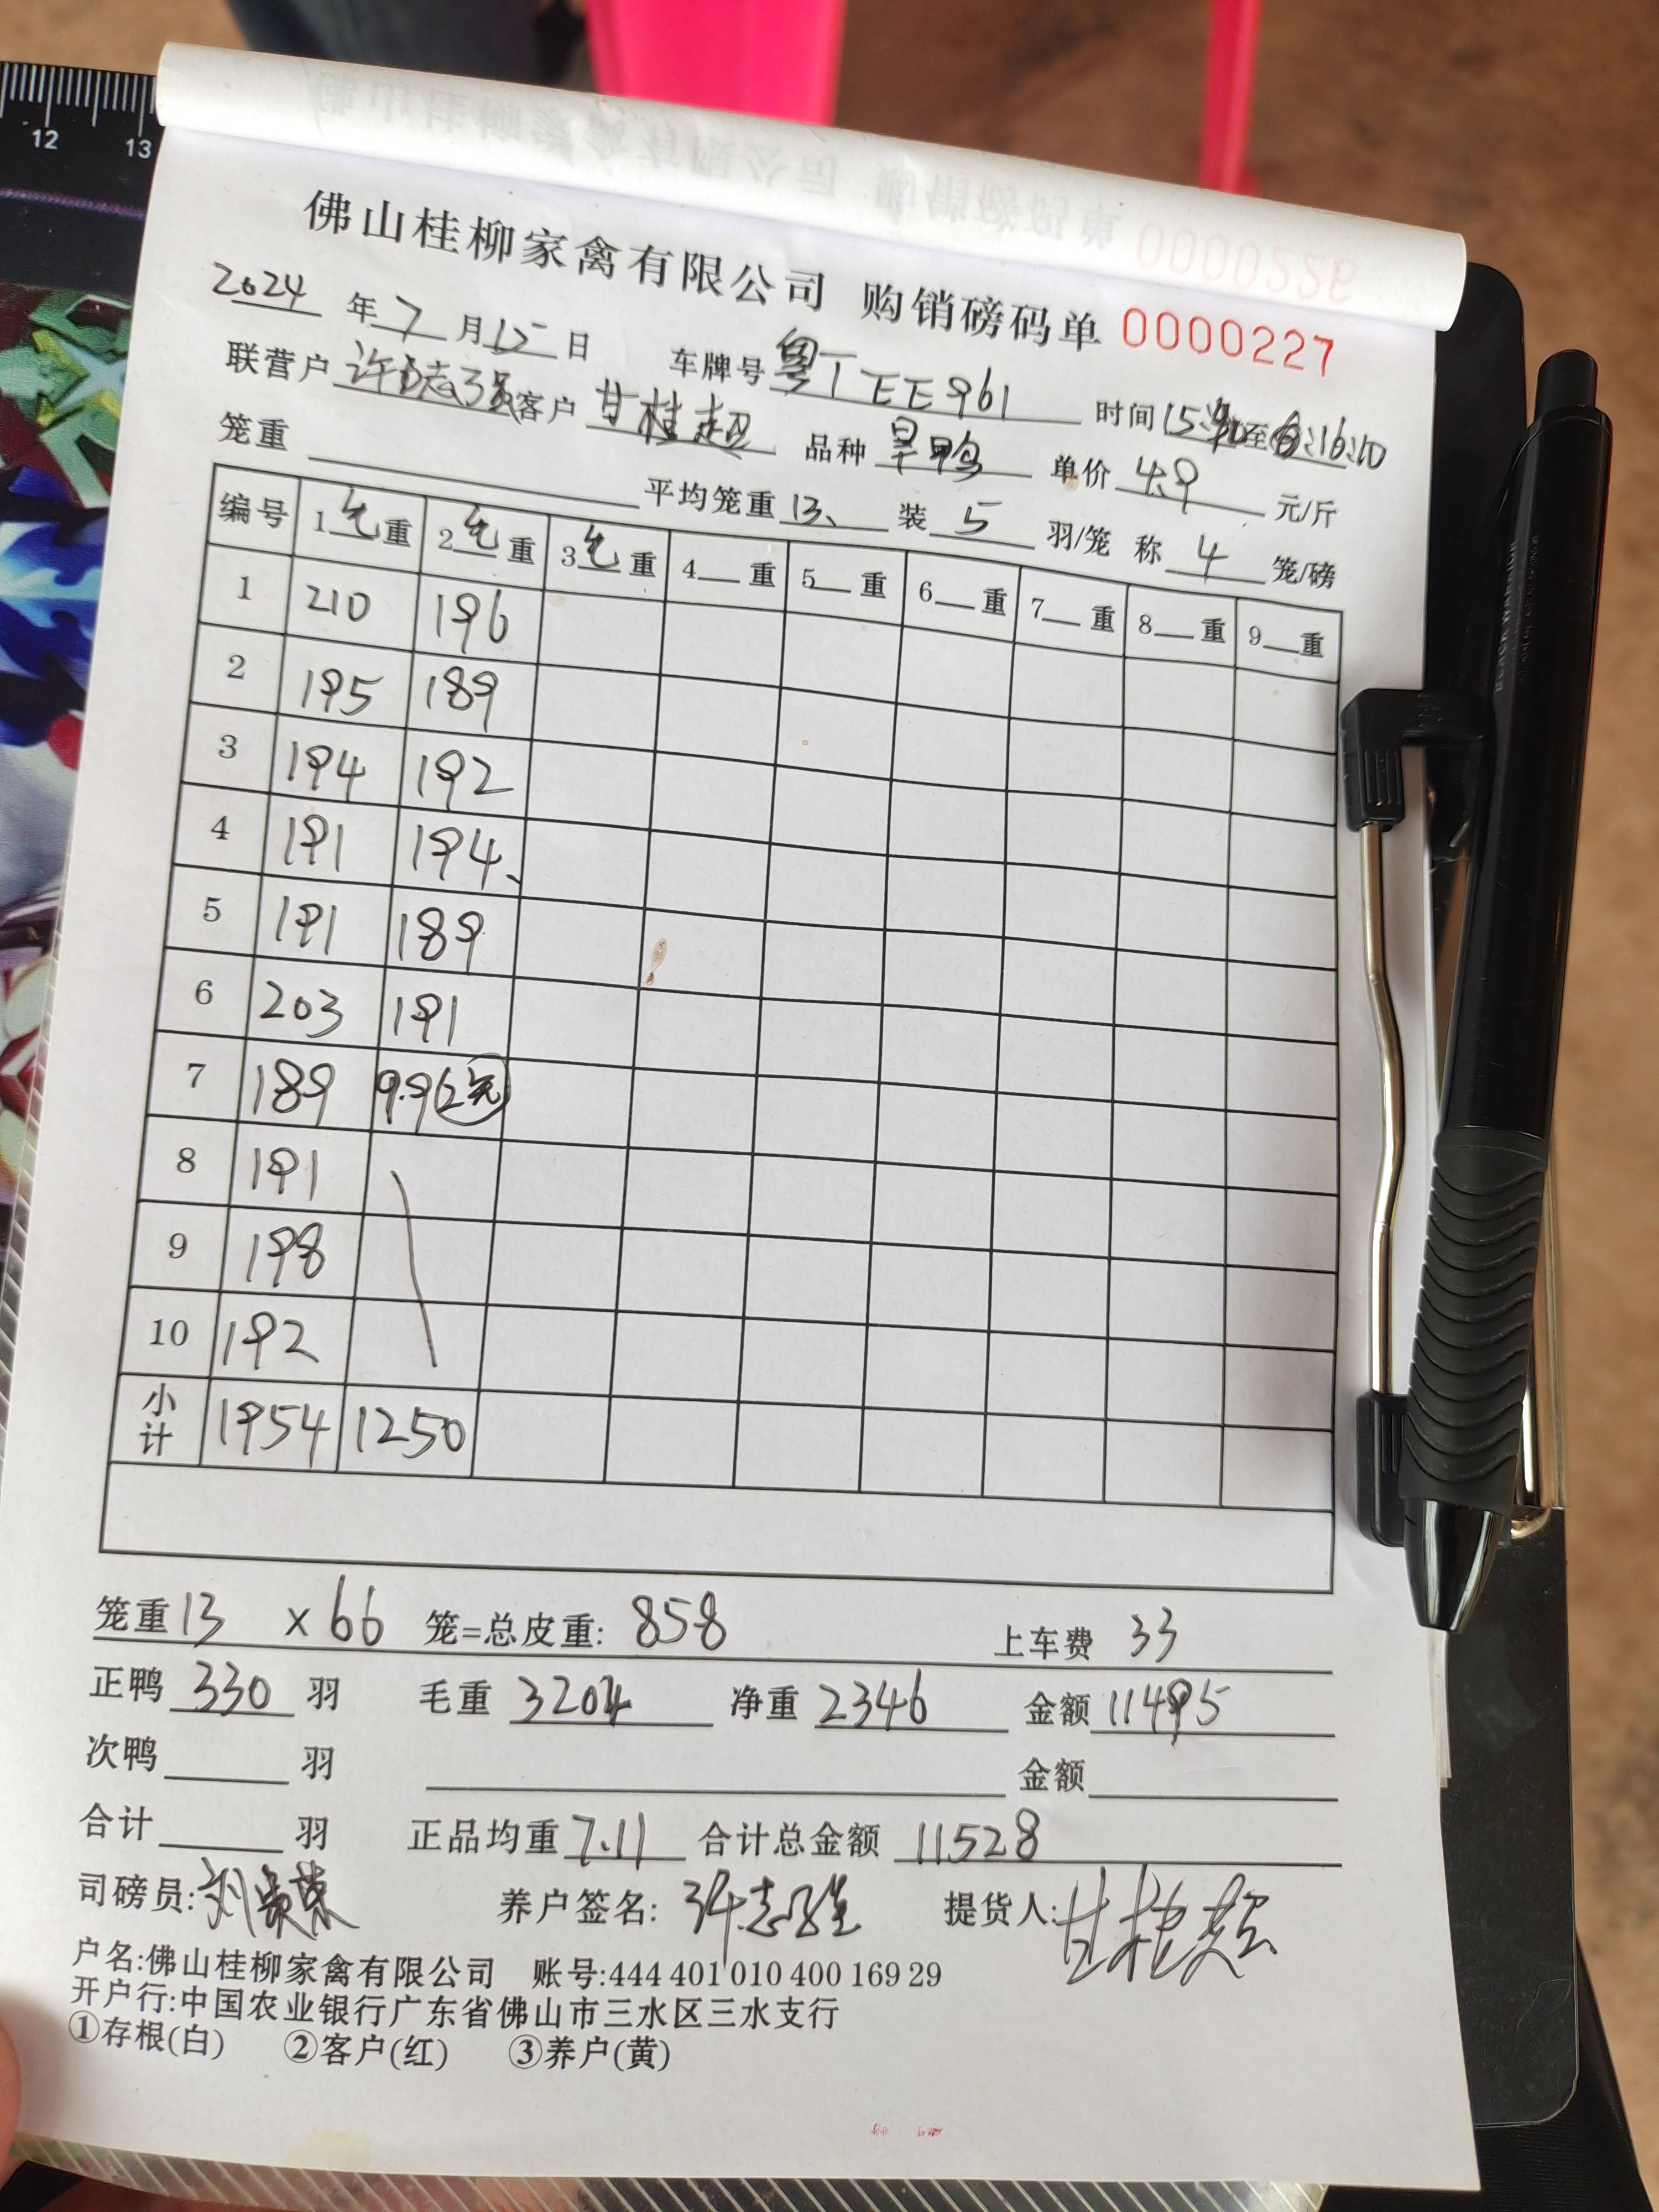 12 13
佛山桂柳家禽有限公司 购销磅码单 0000227
2024 年 7 月 15 日 车牌号 粤TEE961 时间 15: 至 16:10
联营户 许志强 客户 甘桂超 品种 旱鸭 单价 4.9 元/斤
笼重 平均笼重 13、 装 5 羽/笼 称 4 笼/磅
编号 1毛重 2毛重 3毛重 4 重 5 重 6 重 7 重 8 重 9 重
1 210 196
2 195 189
3 194 192
4 191 194、
5 191 189
6 203 191
7 189 99(2笼)
8 191
9 198
10 192
小计 1954 1250
笼重 13 ×66 笼=总皮重: 858 上车费 33
正鸭 330 羽 毛重 3204 净重 2346 金额 11495
次鸭 羽 金额
合计 羽 正品均重 7.11 合计总金额 11528
司磅员: 养户签名: 许志强 提货人: 甘桂超
户名:佛山桂柳家禽有限公司 账号:444 401 010 400 169 29
开户行:中国农业银行广东省佛山市三水区三水支行
①存根(白) ②客户(红) ③养户(黄)